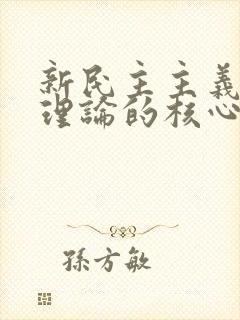 新民主主義
理論的核心
孫方敏